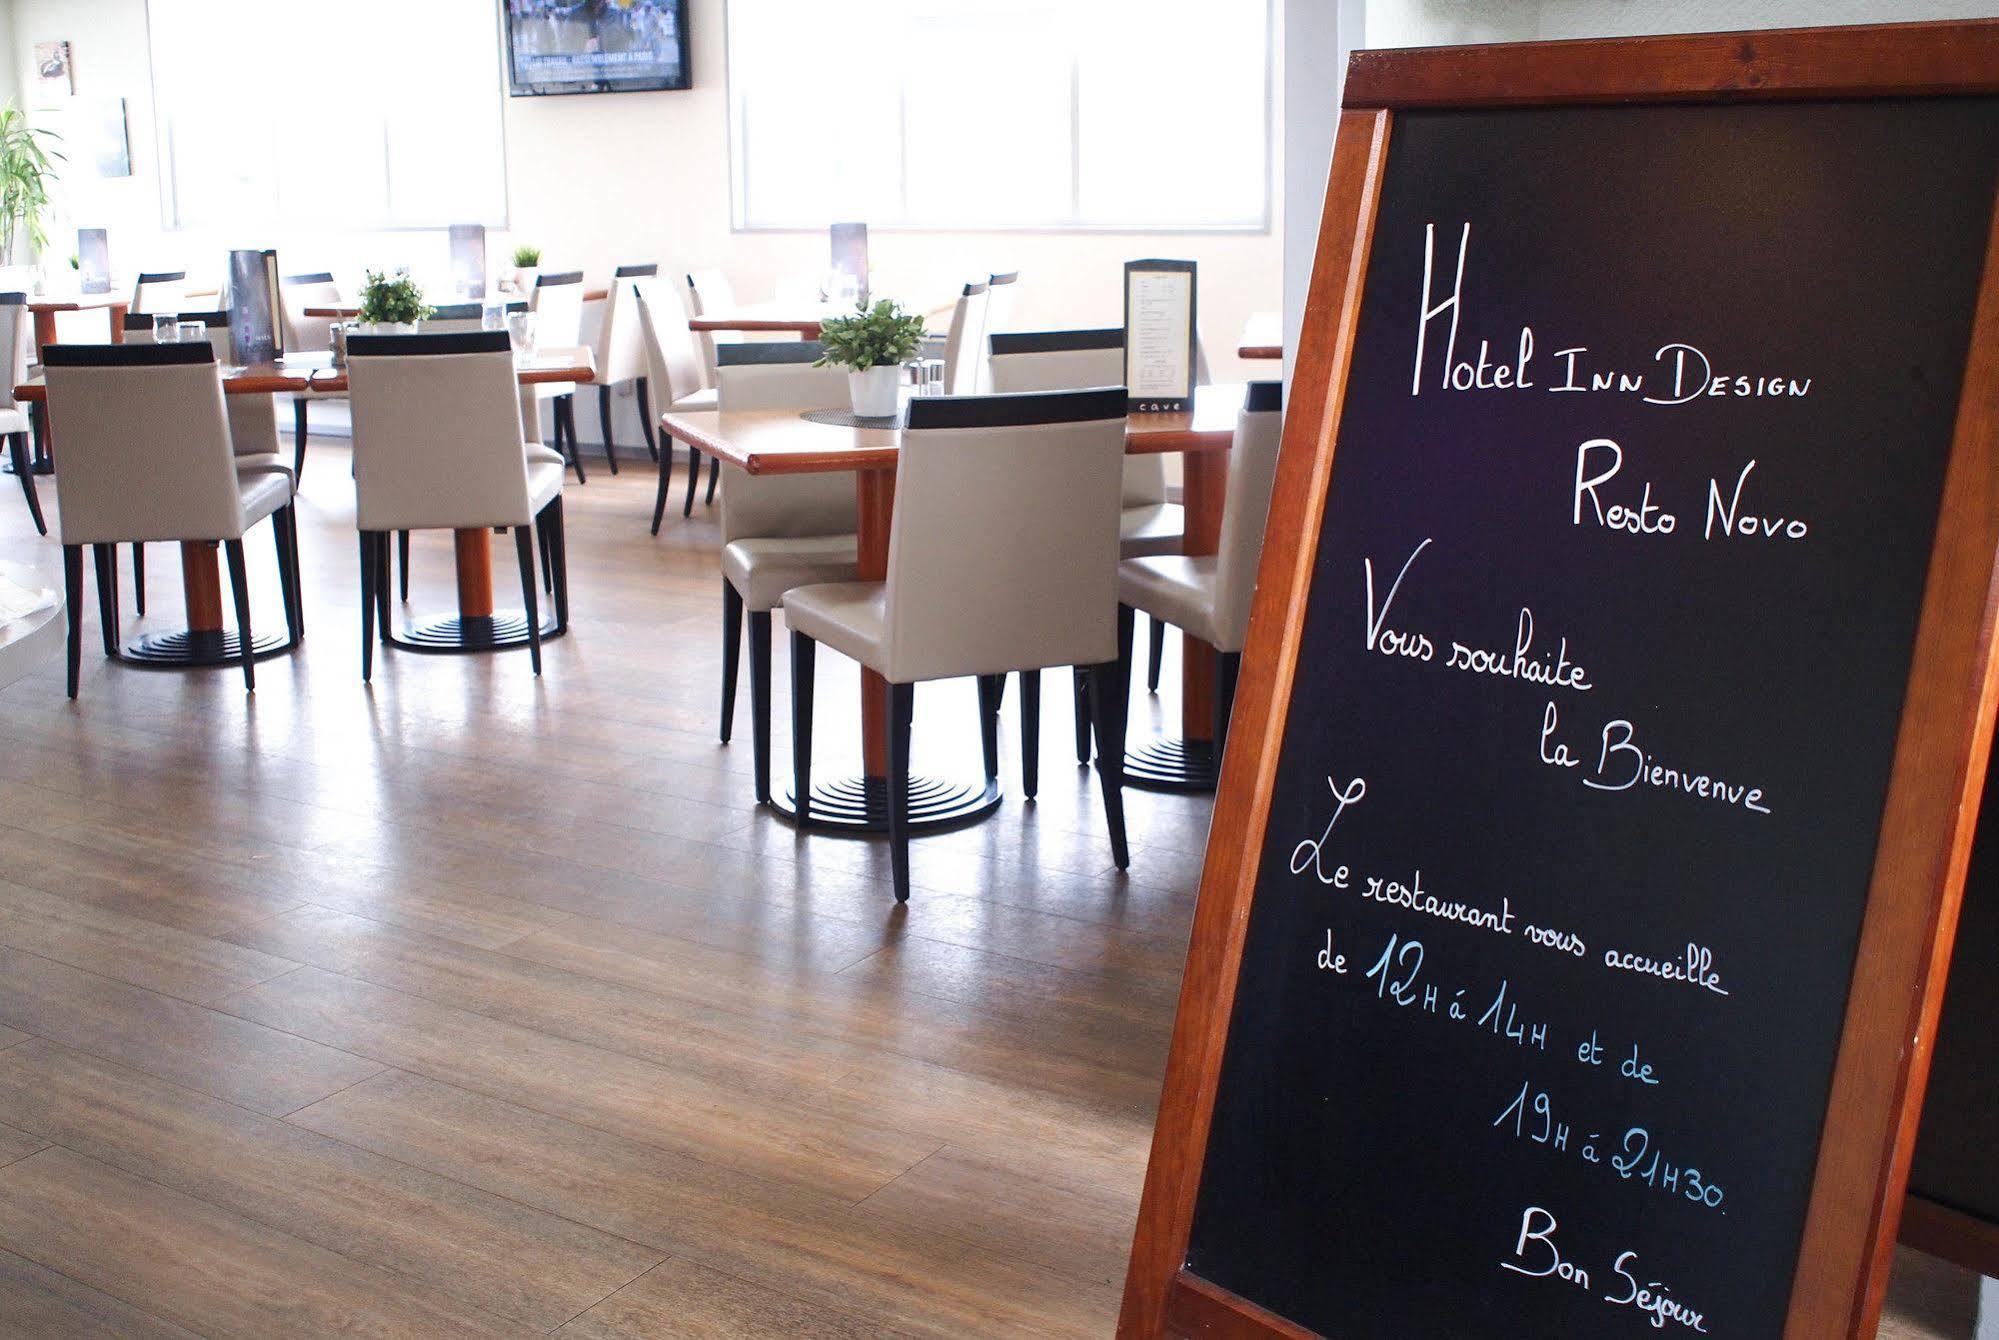 Hotel Inn Design
Resto Novo
Vous souhaite
la Bienvenue
Le restaurant vous accueille
de 12H á 14H et de
19H á 21H30.
Bon Séjour
cave